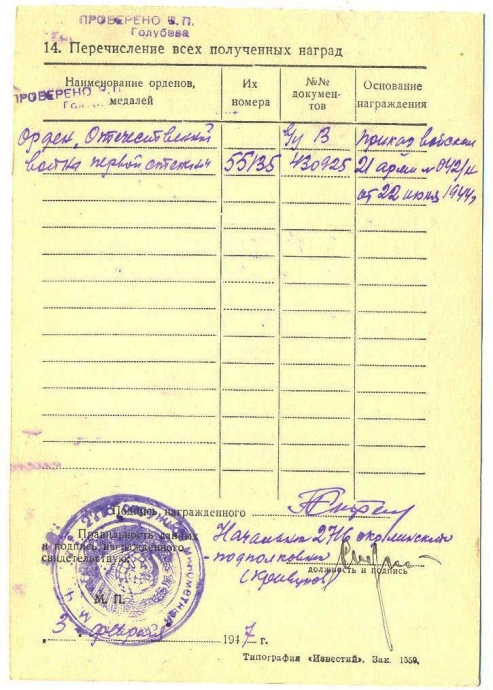 ПРОВЕРЕНО В.П.
Голубева
14. Перечисление всех полученных наград
Наименование орденов, медалей
Их номера
№№ документов
Основание награждения
ПРОВЕРЕНО В.П.
Орден „Отечественной
войны первой степени
55135
уд В
430925
Приказ войскам
21 арм №042/н
от 22 июня 1944г
Подпись награжденного
Правильность данных
и подпись награжденного
свидетельствую:
Начальник
подполковник
должность и подпись
М. П.
3 февраля 1947 г.
Типография «Известий». Зак. 1559.